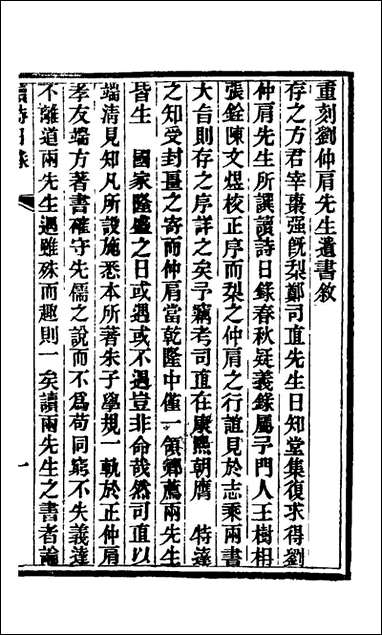 重刻劉仲肩先生遺書敘
存之方君宰棗强旣梨鄭司直先生日知堂集復求得劉
仲肩先生所譔讀詩日錄春秋疑義錄屬予門人王樹枏
張銓陳文煜校正序而梨之仲肩之行誼見於志乘兩書
大旨則存之序詳之矣予竊考司直在康熙朝膺　特達
之知受封疆之寄而仲肩當乾隆中僅一領鄉薦兩先生
皆生　國家隆盛之日或遇或不遇豈非命哉然司直以
端淸見知凡所設施悉本所著朱子學規一軌於正仲肩
孝友端方著書確守先儒之說而不爲苟同窮不失義達
不離道兩先生遇雖殊而趣則一矣讀兩先生之書者論
讀詩日錄
一